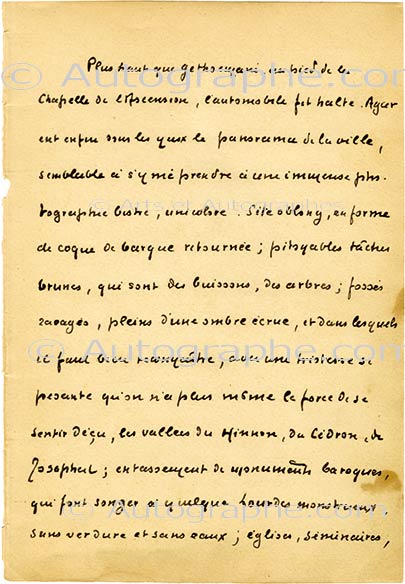 Plus haut que Gethsemani, au pied de la
Chapelle de l'Ascension, l'automobile fit halte. Agar
eut enfin sous les yeux le panorama de la ville,
semblable à s'y méprendre à une immense pho-
tographie bistre, unicolore. Site oblong, en forme
de coque de barque retournée ; pitoyables taches
brunes, qui sont des buissons, des arbres ; fossés
ravagés, pleins d'une ombre écrue, et dans lesquels
il faut bien reconnaître, avec une tristesse si
pesante qu'on n'a plus même la force de se
sentir déçu, les vallées du Hinnon, du Cédron, de
Josaphat ; entassement de monuments baroques,
qui font songer à quelque Lourdes monstrueux
sans verdure et sans eaux ; églises, séminaires,
© Autographe.com
© Arts et Autographes
© Autographe.com